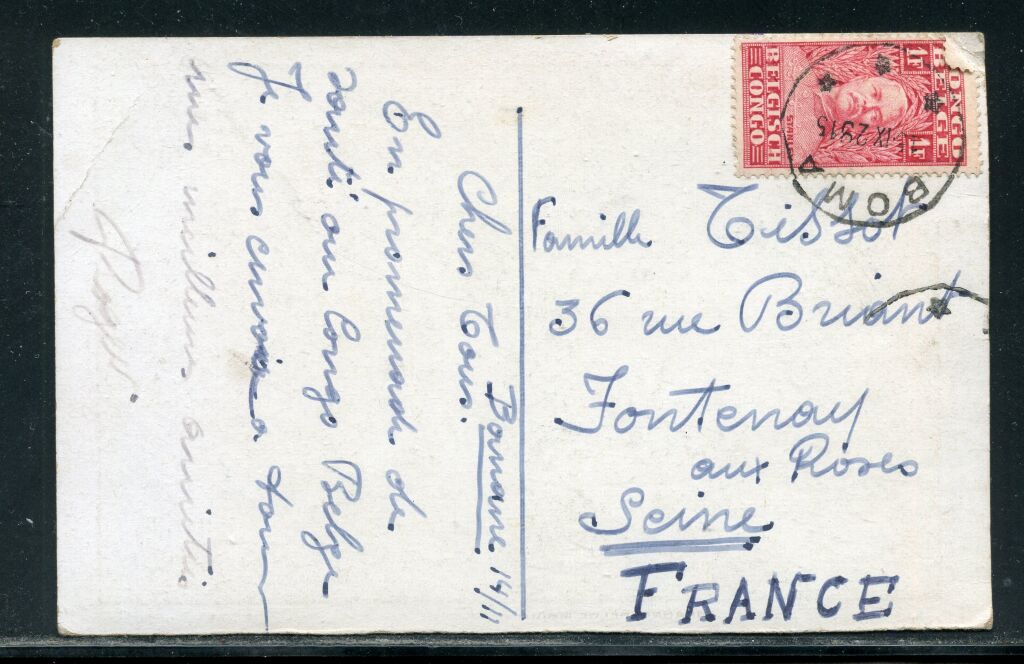 Banane 14/11
Chers Tous.
En promenade de
santé au Congo Belge
Je vous envoie a tous
mes meilleures amitiés
Roger.
CONGO BELGE
1F 1F
STANLEY
BELGISCH CONGO
BOMA
Famille Tissot
36 rue Briant
Fontenay
aux Roses
Seine
FRANCE